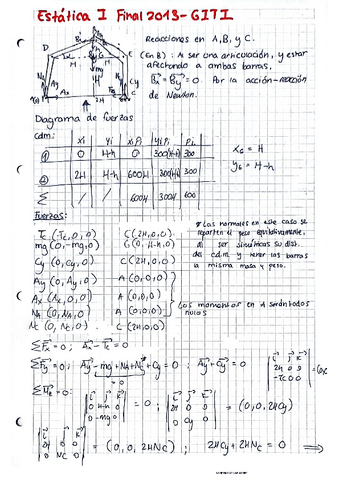 Estática I Final 2013- GITI
Reacciones en A, B, y C.
(En B): Al ser una articulación, y estar
afectando a ambas barras,
Bx = By = 0 Por la acción-reacción
de Newton.
Diagrama de fuerzas
cdm:
xi yi xiPi yiPi Pi
① 0 H-h 0 300(H-h) 300
② 2H H-h 600H 300(H-h) 300
Σ / / 600H 600
xG = H
yG = H-h
Fuerzas:
Tc (-Tc, 0, 0) C (2H, 0, 0)
mg (0, -mg, 0) G (0, H-h, 0)
Cy (0, Cy, 0) C (2H, 0, 0)
Ay (0, Ay, 0) A (0, 0, 0)
Ax (Ax, 0, 0) A (0, 0, 0)
NA (0, NA, 0) A (0, 0, 0)
Nc (0, Nc, 0) C (2H, 0, 0)
* Las normales en este caso se
reparten el peso equitativamente,
al ser simétricas su dist.
del c.d.m. y tener las barras
la misma masa y peso.
Los momentos en A serán todos
nulos
ΣFx = 0; Ax - Tc = 0
ΣFy = 0; Ay - mg + NA + Nc + Cy = 0; Ay + Cy = 0;
i j k
2H 0 0
-Tc 0 0
ΣMA = 0:
i j k
0 H-h 0
0 -mg 0
= 0;
i j k
2H 0 0
0 Cy 0
= (0, 0, 2HCy)
i j k
2H 0 0
0 NC 0
= (0, 0, 2HNc); 2HCy + 2HNc = 0 ⟹